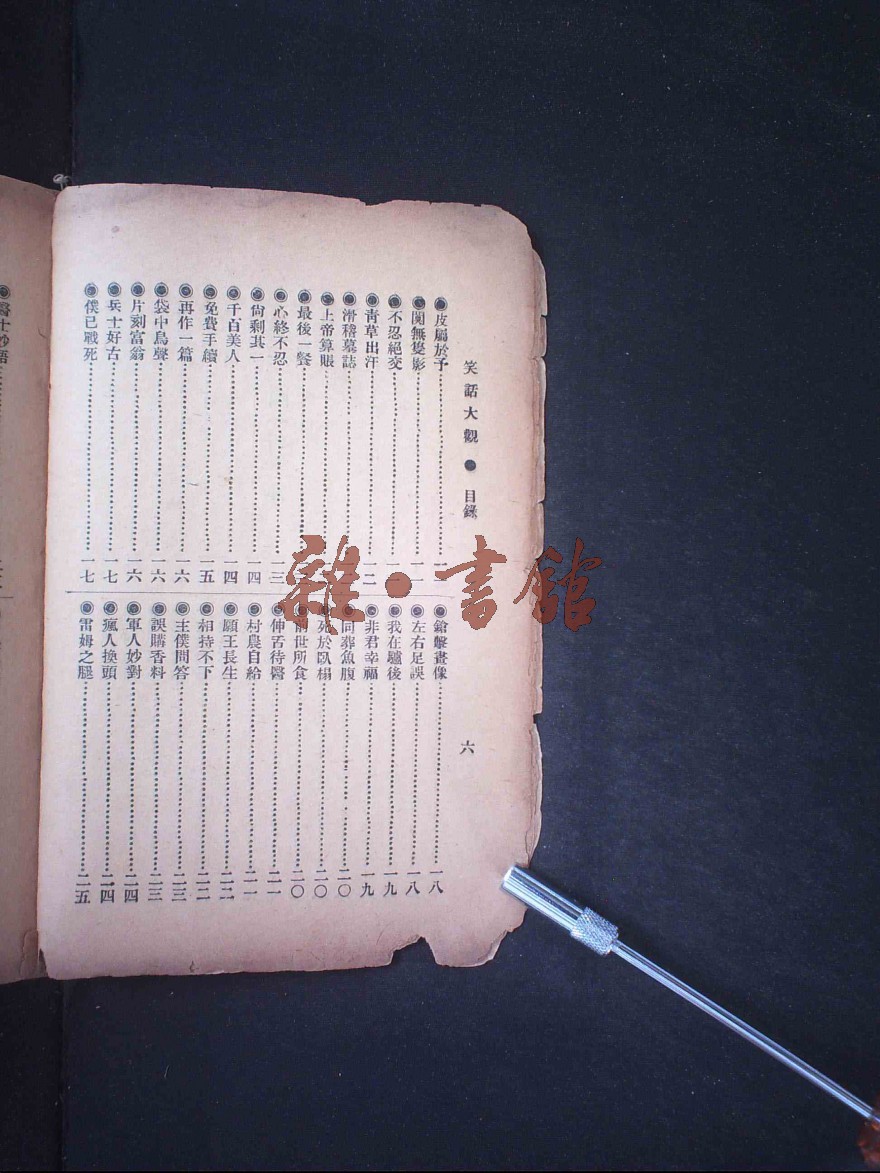 笑話大觀●目錄 六
◉皮屬於予……一
◉闃無隻影……一
◉不忍絕交……一
◉青草出汗……一二
◉滑稽墓誌
◉上帝算賬
◉最後一餐……一三
◉心終不忍……一三
◉尙剩其一……一四
◉千百美人……一四
◉免費手續……一五
◉再作一篇……一六
◉袋中鳥聲……一六
◉片刻富翁……一六
◉兵士好古……一七
◉僕已戰死……一七
◉鎗擊畫像……一八
◉左右足誤……一八
◉我在驢後……一九
◉非君幸福……一九
◉同葬魚腹……二〇
◉死於臥榻……二〇
◉前世所食……二〇
◉伸舌待醫……二一
◉村農自給……二一
◉願王長生……二二
◉相持不下……二二
◉主僕問答……二三
◉誤購香料……二三
◉軍人妙對……二四
◉瘋人換頭……二四
◉雷姆之腿……二五
◉醫士妙語
雜·書館